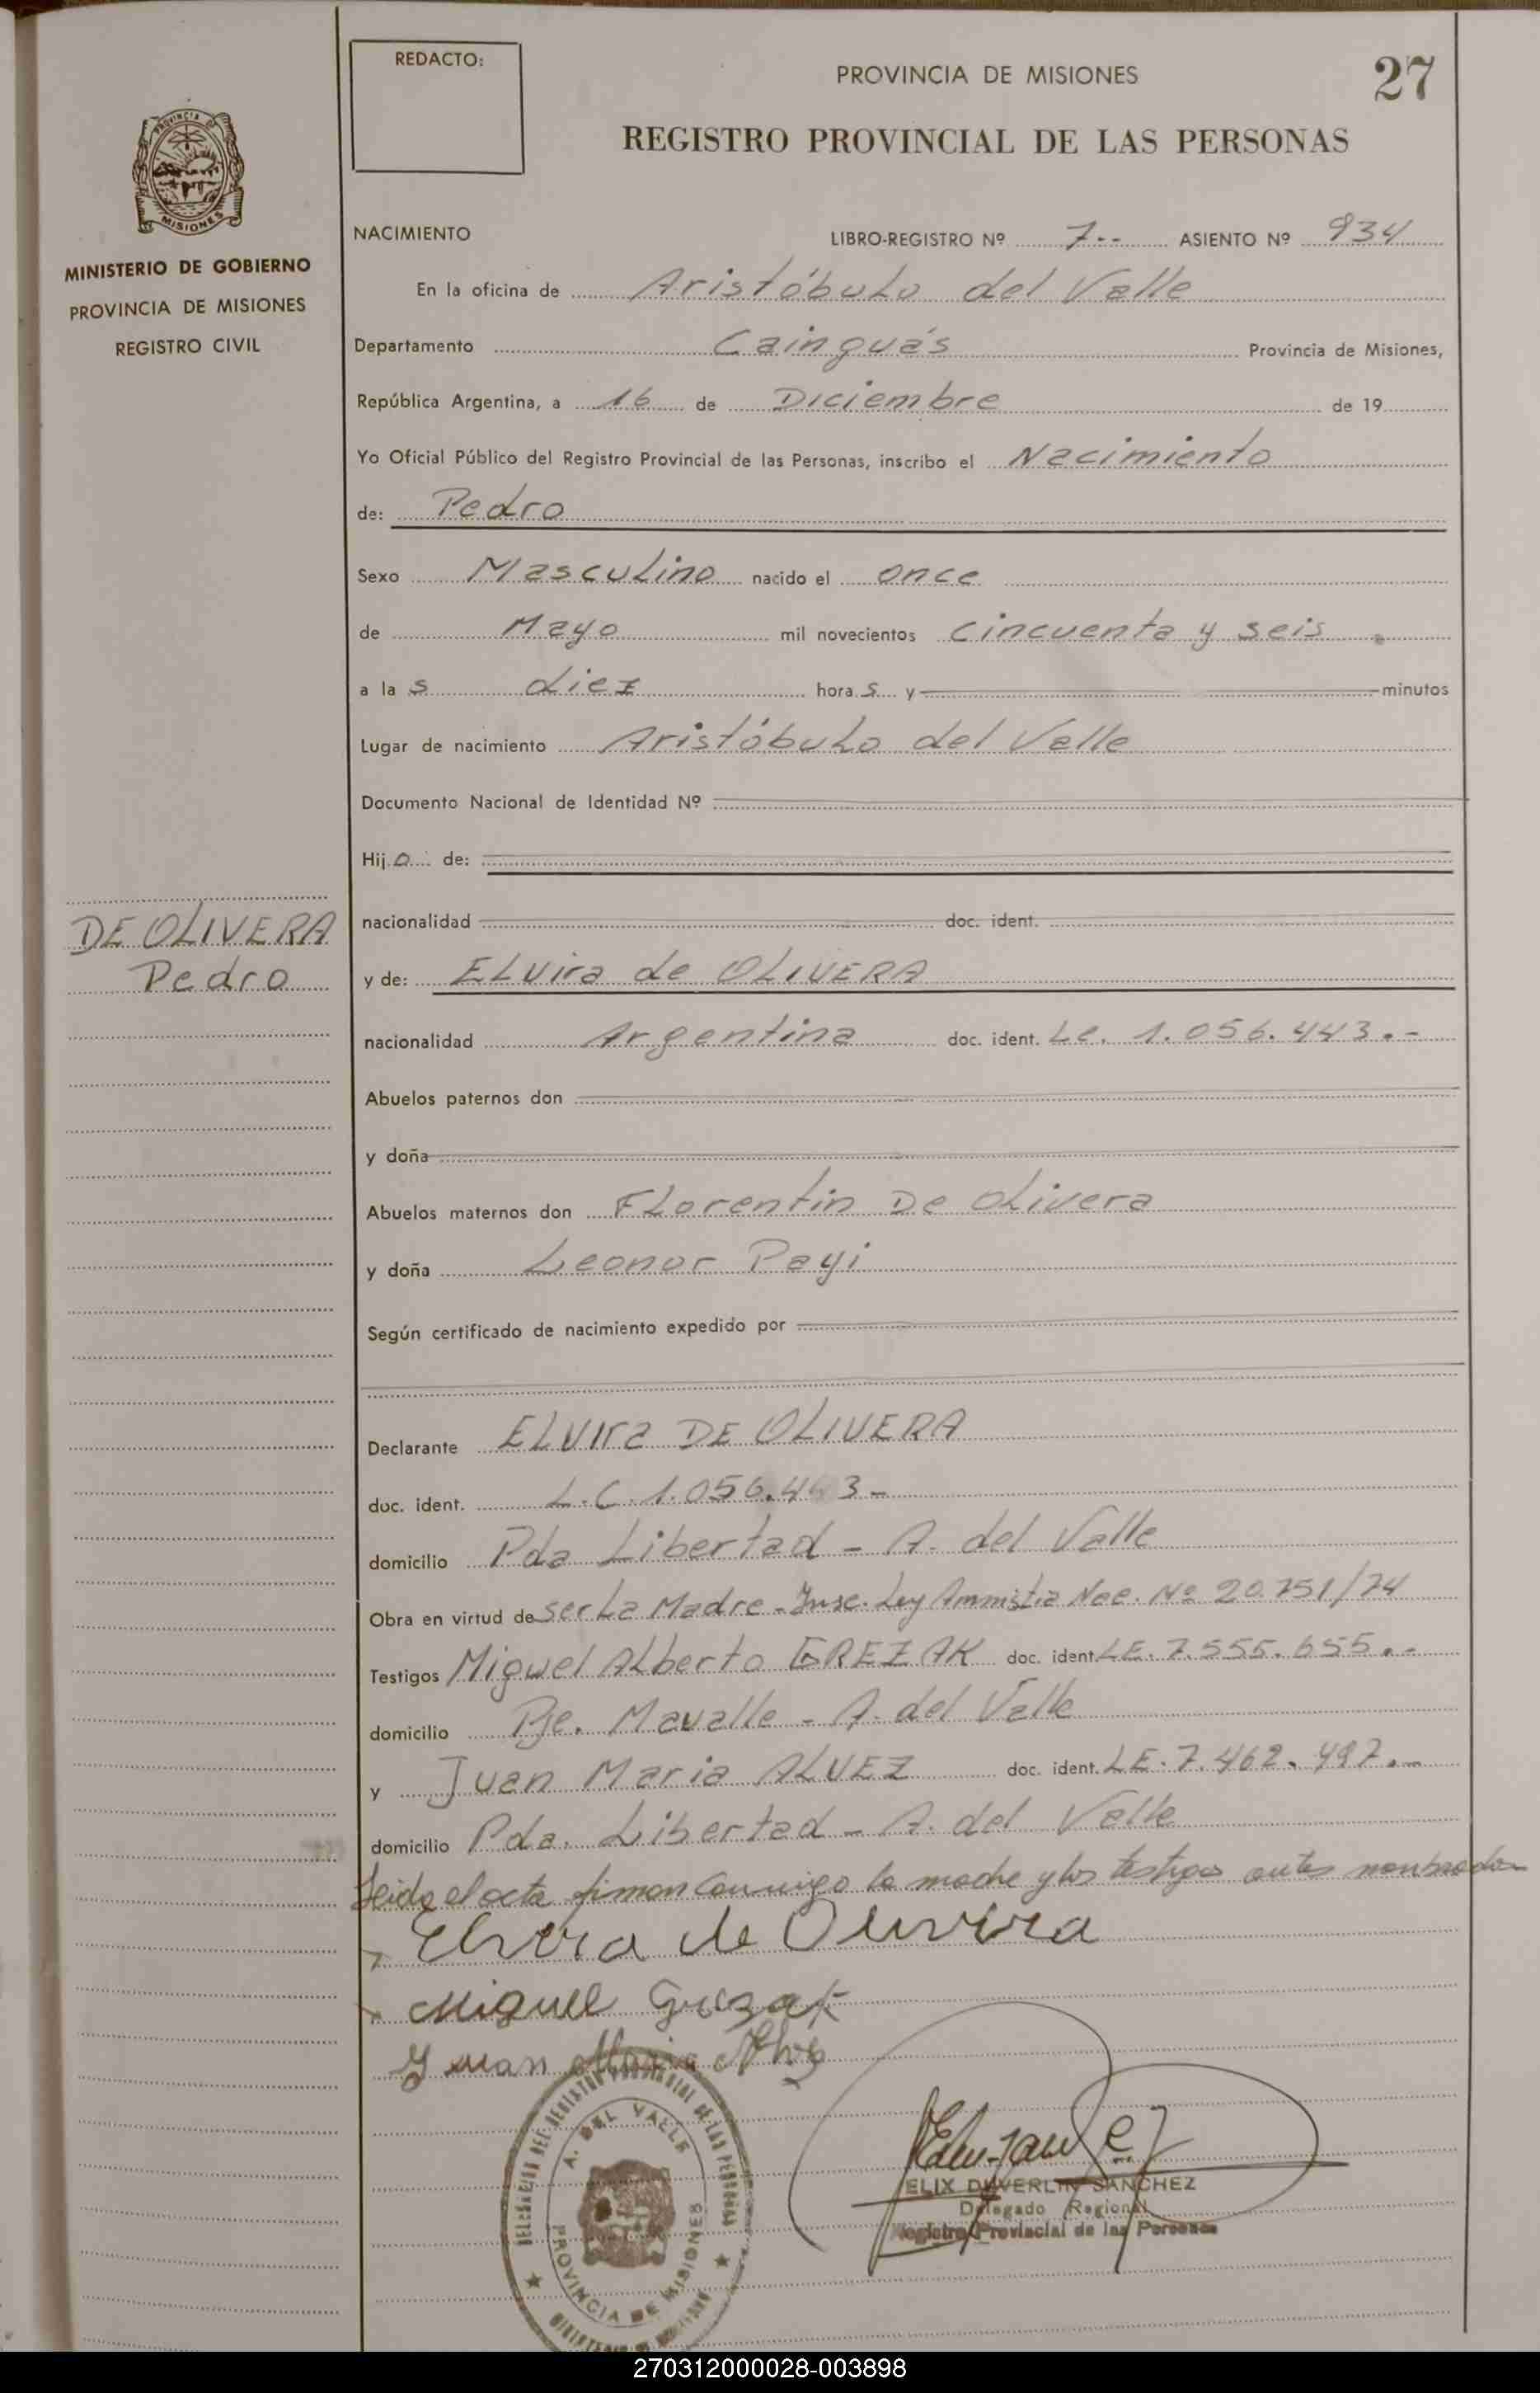 REDACTO:
PROVINCIA DE MISIONES
27
REGISTRO PROVINCIAL DE LAS PERSONAS
MISIONES
MINISTERIO DE GOBIERNO
PROVINCIA DE MISIONES
REGISTRO CIVIL
NACIMIENTO
LIBRO-REGISTRO Nº 7.-- ASIENTO Nº 934
En la oficina de Aristóbulo del Valle
Departamento Cainguás Provincia de Misiones,
República Argentina, a 16 de Diciembre de 19
Yo Oficial Público del Registro Provincial de las Personas, inscribo el Nacimiento
de: Pedro
Sexo Masculino nacido el once
de Mayo mil novecientos cincuenta y seis
a la s diez hora s y minutos
Lugar de nacimiento Aristóbulo del Valle
Documento Nacional de Identidad Nº
Hij o de:
DE OLIVERA
Pedro
nacionalidad doc. ident.
y de: ELvira de OLIVERA
nacionalidad Argentina doc. ident. Lc. 1.056.443.-
Abuelos paternos don
y doña
Abuelos maternos don FLorentin De OLivera
y doña Leonor Payi
Según certificado de nacimiento expedido por
Declarante ELVIra DE OLIVERA
doc. ident. L.C. 1.056.443-
domicilio Pda Libertad - A. del Valle
Obra en virtud de ser La Madre - Insc. Ley Amnistia Nac. Nº 20.751/74
Testigos Miguel ALberto GREZAK doc. ident LE. 7.555.655.-
domicilio Pje. Mavalle - A. del Valle
y Juan Maria ALVEZ doc. ident. LE. 7.462.497.-
domicilio Pda. Libertad - A. del Valle
Leida el acta firman conmigo la madre y los testigos antes nombrados
Elvira de Olivira
Miguel Grezak
Juan Maria Alvez
DELEGACION DEL REGISTRO PROVINCIAL DE LAS PERSONAS
A. DEL VALLE
PROVINCIA DE MISIONES
ELIX DUVERLIN SANCHEZ
Delegado Regional
Registro Provincial de las Personas
270312000028-003898